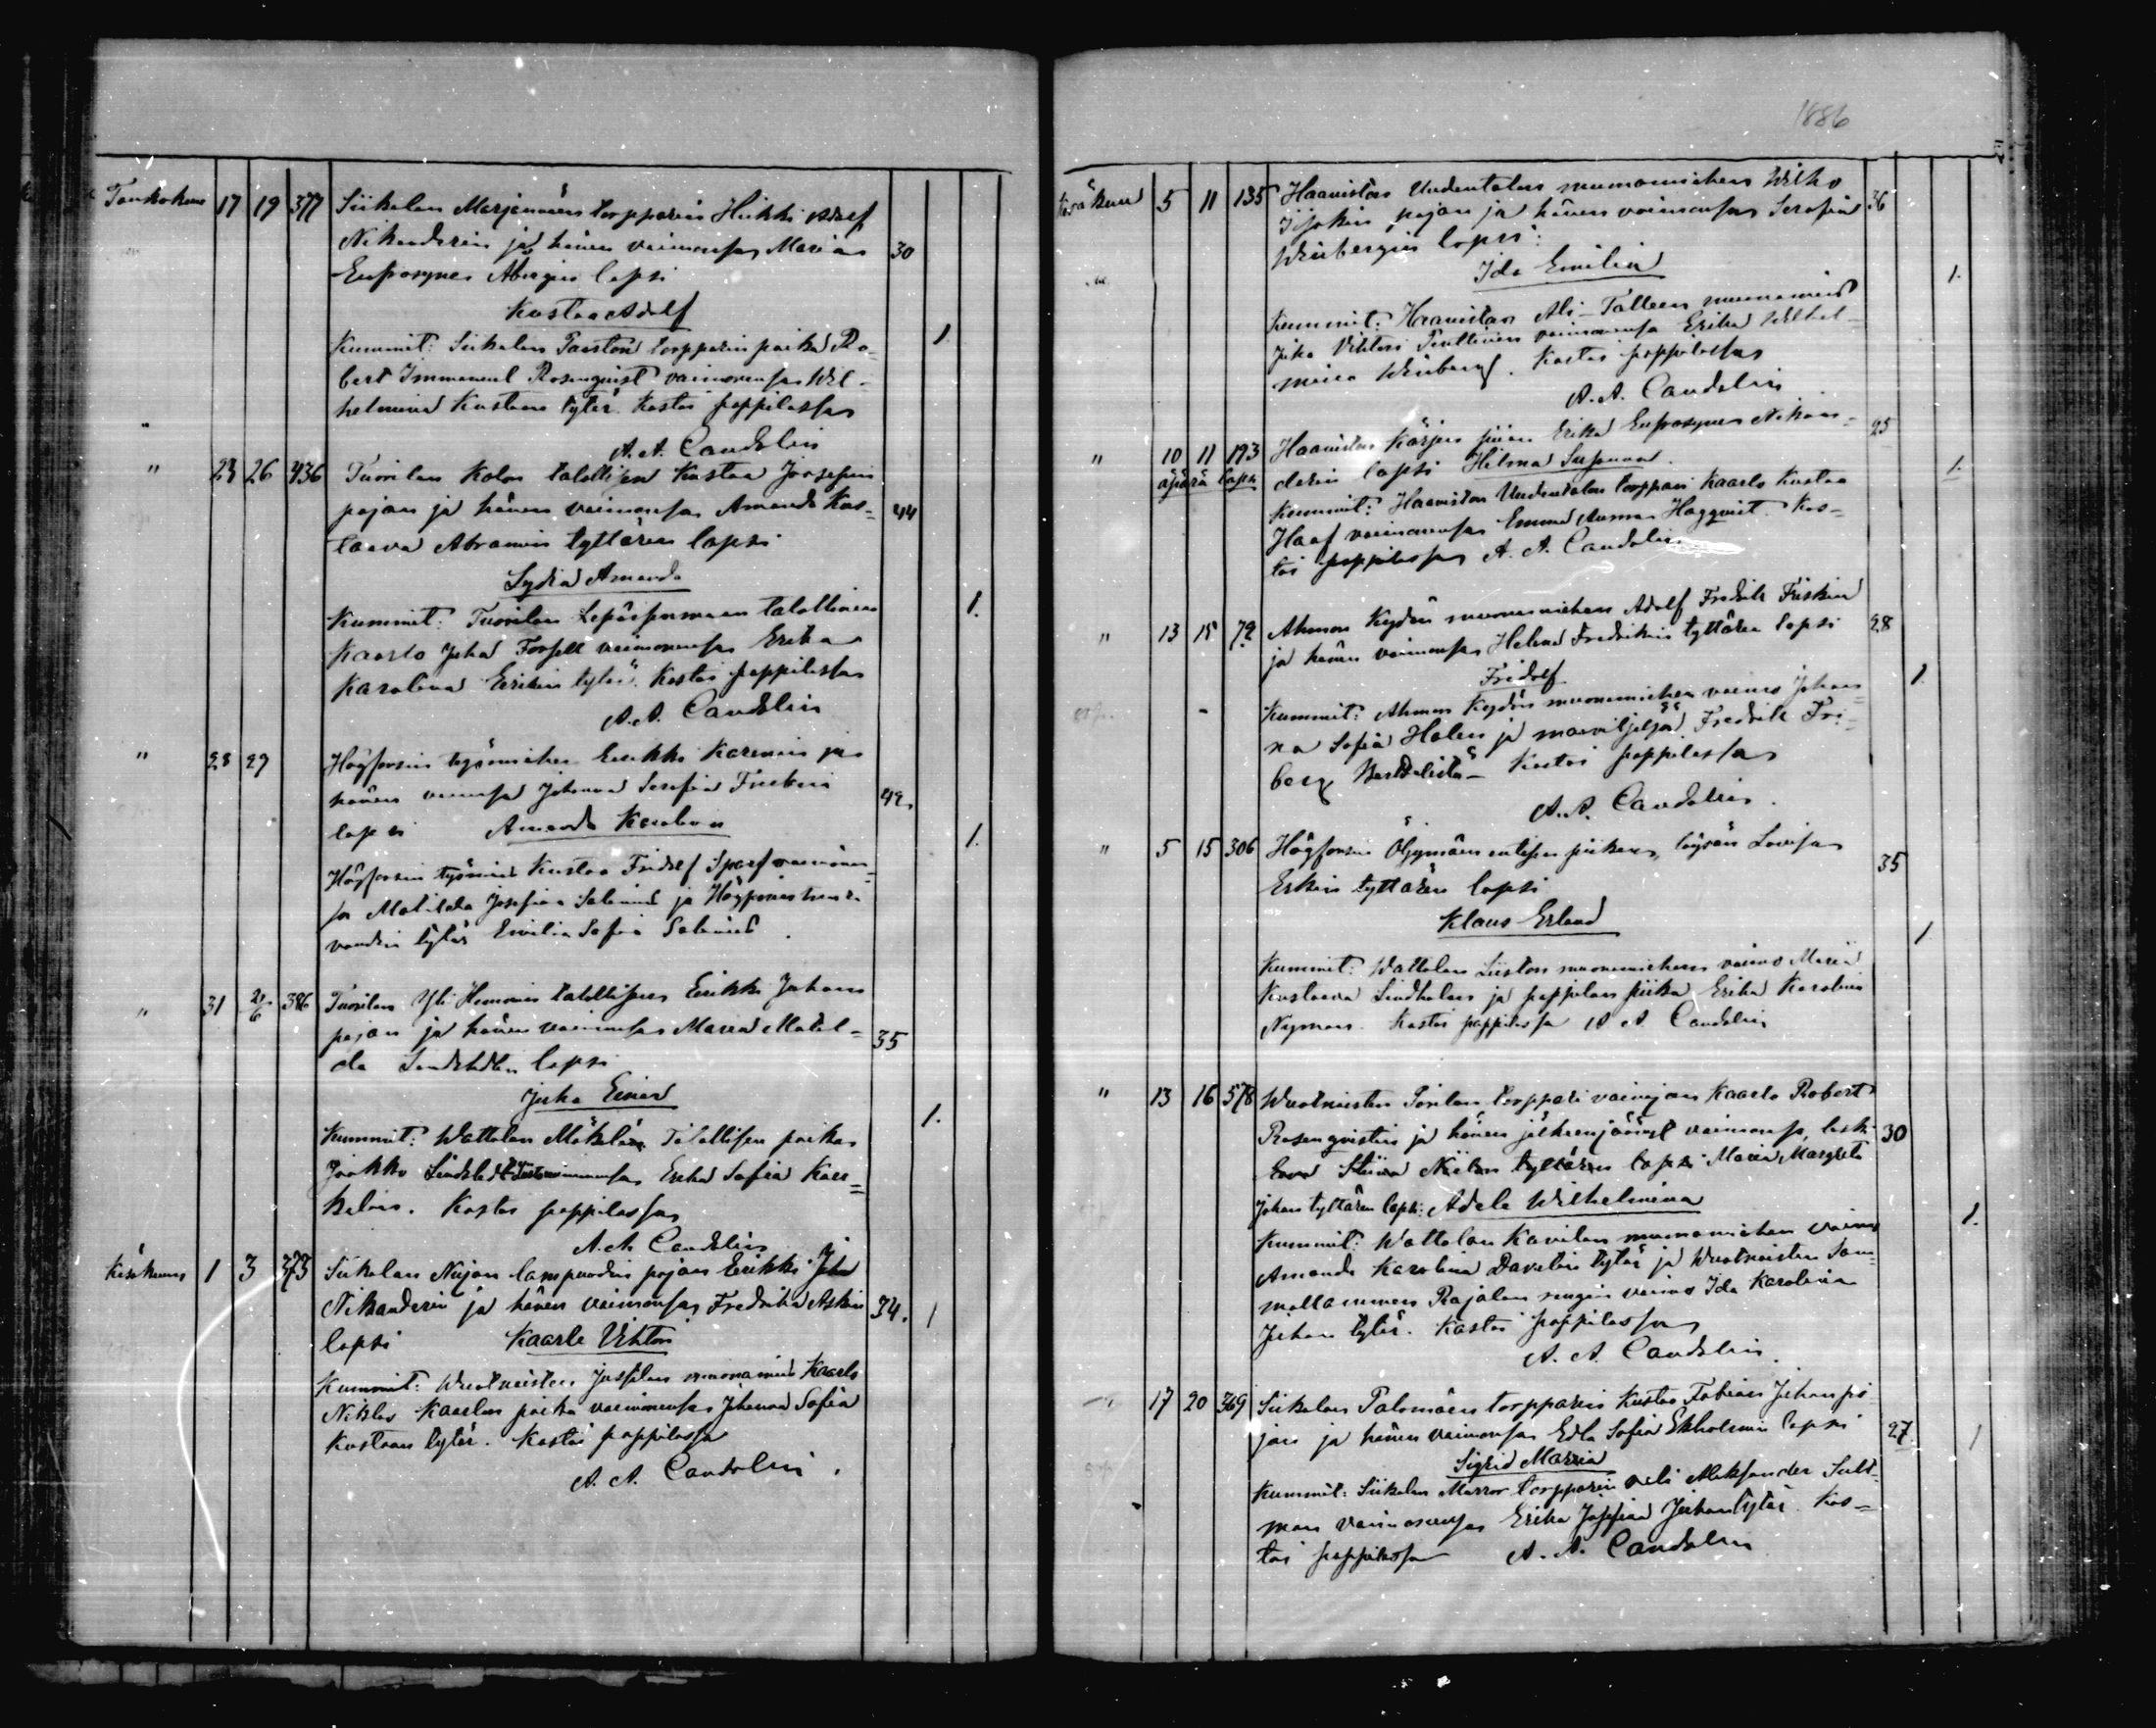 Toukokuu 17 19 377 Siikalan Marjamäen torpparin Heikki Adolf
Nikanderin ja hänen vaimonsa Maria 30
Eufrosynes Abergin lapsi
Kustaa Adolf
Kummit: Siikalan torpparin poika Ro- 1
bert Immanuel Rosenqvist vaimonensa Wil-
helmina Kustaan tytär. Kastoi pappilassa
"
A. A. Candolin
" 23 26 436 Tuorilan Kolon talollisen Kustaa Josefin
pojan ja hänen vaimonsa Amanda Kus- 44
taava Abramin tyttären lapsi
Lydia Amanda
Kummit: Tuorilan talollinen 1.
Kaarlo Juha Forsell vaimonensa Erika
Karolina Eerikin tytär. Kastoi pappilassa
A. A. Candolin
" 28 29 Högforsin työmiehen Eerikki ja
hänen vaimonsa Johanna Serafia 42
lapsi Amanda Karolina 1.
Högforsin työmies Kustaa Fridolf vaimonen-
sa Matilda Josefina Salenius ja Högforsin
voudin tytär Emilia Sofia Salenius.
" 31 2/6 386 Tuorilan Yli Hemmin talollisen Eerikki Juhan
pojan ja hänen vaimonsa Maria Matil- 35
da Lindstedtin lapsi
Juho Einar
Kummit: Wattolan talollisen poika 1.
Jaakko Lindstedt vaimonensa Erika Sofia
Kastoi pappilassa
A. A. Candolin
Kesäkuu 1 3 373 Siikalan lampuodin pojan Eerikki Juho
Nikanderin ja hänen vaimonsa Fredrika 34. 1
lapsi Kaarle Vihtori
Kummit: Wuotnaisten Jussilan muonamies Kaarlo
Niklas Kaarlon poika vaimonensa Johanna Sofia
Kustaan tytär. Kastoi pappilassa
A. A. Candolin.
1886
Kesäkuu 5 11 135 Haaviston Uudentalon muonamiehen Wilho
pojan ja hänen vaimonsa Serafia 36
Winbergin lapsi:
Ida Emilia 1.
Kummit: Haaviston Ali-Talleen muonamies
Juho Vihtori vaimonensa Erika Wilhel-
miina Winberg. Kastoi pappilassa
A. A. Candolin
" 10 11 193 Haaviston piian Erika Eufrosynes Nikan- 25
äpärä lapsi derin lapsi Hilma Susanna. 1.
Kummit: Haaviston Uudentalon torppari Kaarlo Kustaa
Haaf vaimonensa Emma Hagqvist. Kas-
toi pappilassa A. A. Candolin
" 13 15 72 Ahmon Kydön muonamiehen Adolf Fredrik Friskin
ja hänen vaimonsa Helena Fredrikin tyttären lapsi 28
Fridolf 1.
Kummit: Ahmon Kydön muonamiehen vaimo Johan-
na Sofia ja maanviljelijä Fredrik Fri-
berg Kastoi pappilassa
A. A. Candolin.
" 5 15 306 Högforsin piikan, löysän Lovisa
Erkin tyttären lapsi 35
Klaus Erland 1
Kummit: Wattolan muonamiehen vaimo Maria
Kustaava Lindholm ja pappilan piika Erika Karolina
Nyman. Kastoi pappilassa A A. Candolin
" 13 16 578 Wuotnaisten torppari vainajan Kaarlo Robert
Rosenqvistin ja hänen jälkeenjäänyt vaimonsa, leski 30
Eeva Stiina tyttären lapsi Maria Margreta
Johan tyttären lapsi: Adele Wilhelmina 1.
Kummit: Wattolan Kavilan muonamiehen vaimo
Amanda Karolina Davidin tytär ja Wuotnaisten Sam-
mallammen Rajalan rengin vaimo Ida Karolina
Juhan tytär. Kastoi pappilassa
A. A. Candolin.
" 17 20 369 Siikalan Palomäen torpparin Kustaa Fabian Juhan po-
jan ja hänen vaimonsa Edla Sofia Ekholmin lapsi 27 1
Sigrid Maria
Kummit: Siikalan torpparin veli Aleksander
vaimonensa Erika Josefina Juhan tytär. Kas-
toi pappilassa A. A. Candolin